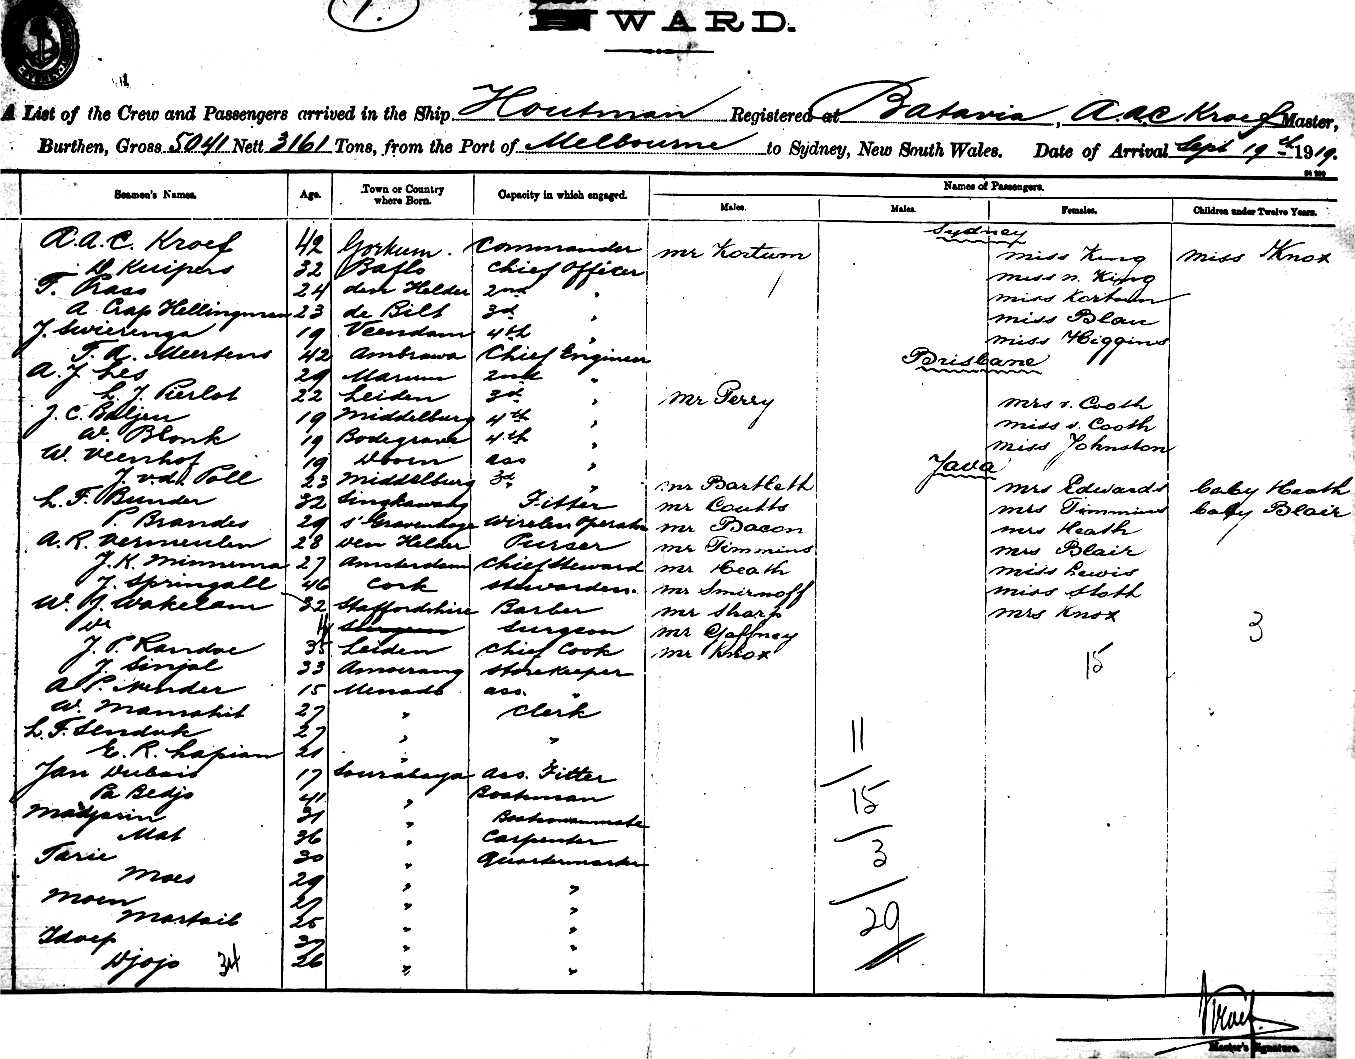 1.
WARD.
A List of the Crew and Passengers arrived in the Ship Houtman Registered at Batavia, A.A.C Kroef Master,
Burthen, Gross 5041 Nett 3161 Tons, from the Port of Melbourne to Sydney, New South Wales. Date of Arrival Sept 19th 1919.
Seamen's Names. Age. Town or Country where Born. Capacity in which engaged. Names of Passengers.
Males. Males. Females. Children under Twelve Years.
Sydney
A.A.C. Kroef 42 Gorkum. Commander Mr Kortum Miss King Miss Knox
D Kuipers 32 Baflo Chief Officer Miss N. King
F. Prass 24 den Helder 2nd " Miss Kortum
A Crap Hellingman 23 de Bilt 3rd " Miss Blau
J. Swierenga 19 Veendam 4th " Miss Higgins
F. A. Meertens 42 Ambrawa Chief Engineer Brisbane
A. J. Les 29 Marum 2nd "
L. J. Pierlot 22 Leiden 3rd " Mr Perry Mrs v. Cooth
J. C. Baljeu 19 Middelburg 4th " Miss v. Cooth
W. Blonk 19 Bodegrave 4th " Miss Johnston
W. Veenhof 19 Doorn ass " Java
J. v.d. Poll 23 Middelburg 3rd " Mr Bartleth Mrs Edwards baby Heath
L. F. Bunder 32 Singkawang Fitter Mr Coutts Mrs Timmins baby Blair
P. Brandes 29 s'Gravenhage Wireless Operator Mr Bacon Mrs Heath
A. R. Vermeulen 28 den Helder Purser Mr Timmins Mrs Blair
J. K. Minnema 27 Amsterdam Chief Steward Mr Heath Miss Lewis
J. Springall 46 Cork Stewardess. Mr Smirnoff Miss Stoth
W. J. Wakelam 32 Staffordshire Barber Mr Sharp Mrs Knox
Dr Surgeon Surgeon Mr Gaffney 3
J. P. Randoe 35 Leiden Chief Cook Mr Knox 15
J. Sinjal 33 Amoerang Storekeeper
A. P. Nender 15 Menado ass. "
W. Mamahit 27 " Clerk
L. F. Senduk 27 " " 11
E. R. Lapian 21 " "
Jan Dubois 17 Sourabaya Ass. Fitter
Pa Bedjo 41 " Boatsman 15
Madjarin 31 " Boatsmansmate
Mat 36 " Carpenter 3
Tarie 30 " Quartermaster
Moes 29 " "
Moen 27 " " 29
Martaib 25 " "
Idoep 37 " "
Djojo 34 26 " "
Kroef.
Master's Signature.